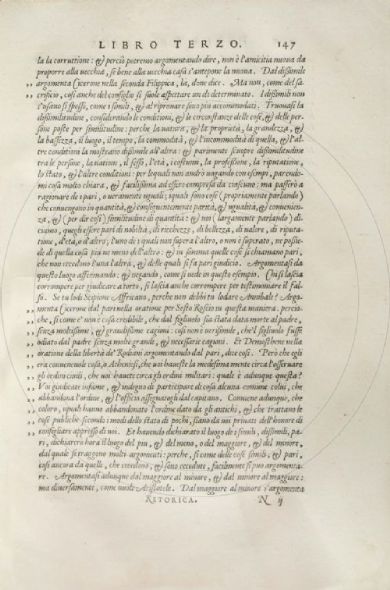 LIBRO TERZO. 147
la la corruttione: & perciò potremo argomentando dire, non è l'amicitia nuova da
preporre alla vecchia, se bene alla vecchia casa s'antepone la nuova. Dal dissimile
argomenta Cicerone nella seconda Filippica, là, dove dice. Ma non, come del sa
crificio, così anche del consiglio si suole aspettare un dì determinato. I dissimili non
s'usano sì spesso, come i simili, & al riprovare sono più accommodati. Truovasi la
dissimilitudine, considerando le conditioni, & le circostanze delle cose, & delle per-
sone poste per similitudine: perche la natura, & la proprietà, la grandezza, &
la bassezza, il luogo, il tempo, la commodità, & l'incommodità di quella, & l'al-
tre conditioni la mostrano dissimile all'altra: & parimente scuopre dissimilitudine
tra le persone, la nation, il sesso, l'età, i costumi, la professione, la riputatione,
lo stato, & l'altre conditioni: per le quali non andrò vagando con esempi, parendo-
mi cosa molto chiara, & facilissima ad essere compresa da ciascuno: ma passerò a
ragionare de i pari, o veramente uguali; i quali sono cose (propriamente parlando)
che convengono in quantità, & conseguentemente parità, & ugualità, & convenien-
za, & (per dir così) similitudine di quantità: & noi (largamente parlando) di-
ciamo, quegli essere pari di nobiltà, di ricchezze, di bellezza, di valore, di riputa-
tione, d'età, o d'altro; l'uno de i quali non supera l'altro, o non è superato, ne possie-
de di quella cosa più ne meno dell'altro: & in somma quelle cose si chiamano pari,
che non eccedono l'una l'altra, & delle quali si fa pari giudicio. Argomentasi da
questo luogo affermando: & negando, come si vede in questo esempio. Chi si lascia
corrompere per giudicare a torto, si lascia anche corrompere per testimoniare il fal-
so. Se tu lodi Scipione Affricano, perche non debbi tu lodare Annibale? Argo-
menta Cicerone dal pari nella oratione per Sesto Roscio in questa maniera: percio-
che, sì come e' non è cosa credibile, che dal figliuolo sia stata data morte al padre,
senza moltissime, & gravissime cagioni: così non è verisimile, che'l figliuolo fusse
odiato dal padre senza molte grandi, & necessarie cagioni. Et Demosthene nella
oratione della libertà de' Rodiani argomentando dal pari, dice così. Però che egli
era convenevole cosa, o Atheniesi, che voi haveste la medesima mente circa l'osservare
gli ordini civili, che voi havete circa gli ordini militari: quale è adunque questa?
Voi giudicate infame, & indegno di participare di cosa alcuna comune colui, che
abbandona l'ordine, & l'officio assegnatogli dal capitano. Conviene adunque, che
coloro, i quali hanno abbandonato l'ordine dato da gli antichi, & che trattano le
cose publiche secondo i modi dello stato di pochi, siano da voi privati dell'honore di
consigliare appresso di voi. Et havendo dichiarato il luogo de i simili, dissimili, pa-
ri, dichiarerò hora il luogo del più, & del meno, o del maggiore, & del minore,
dal quale si traggono molti argomenti: perche, sì come dalle cose simili, & pari,
così ancora da quelle, che eccedono, & sono eccedute, facilmente si può argomenta-
re. Argomentasi adunque dal maggiore al minore, & dal minore al maggiore:
ma diversamente, come vuole Aristotele. Dal maggiore al minore s'argomenta
RETORICA. N ij